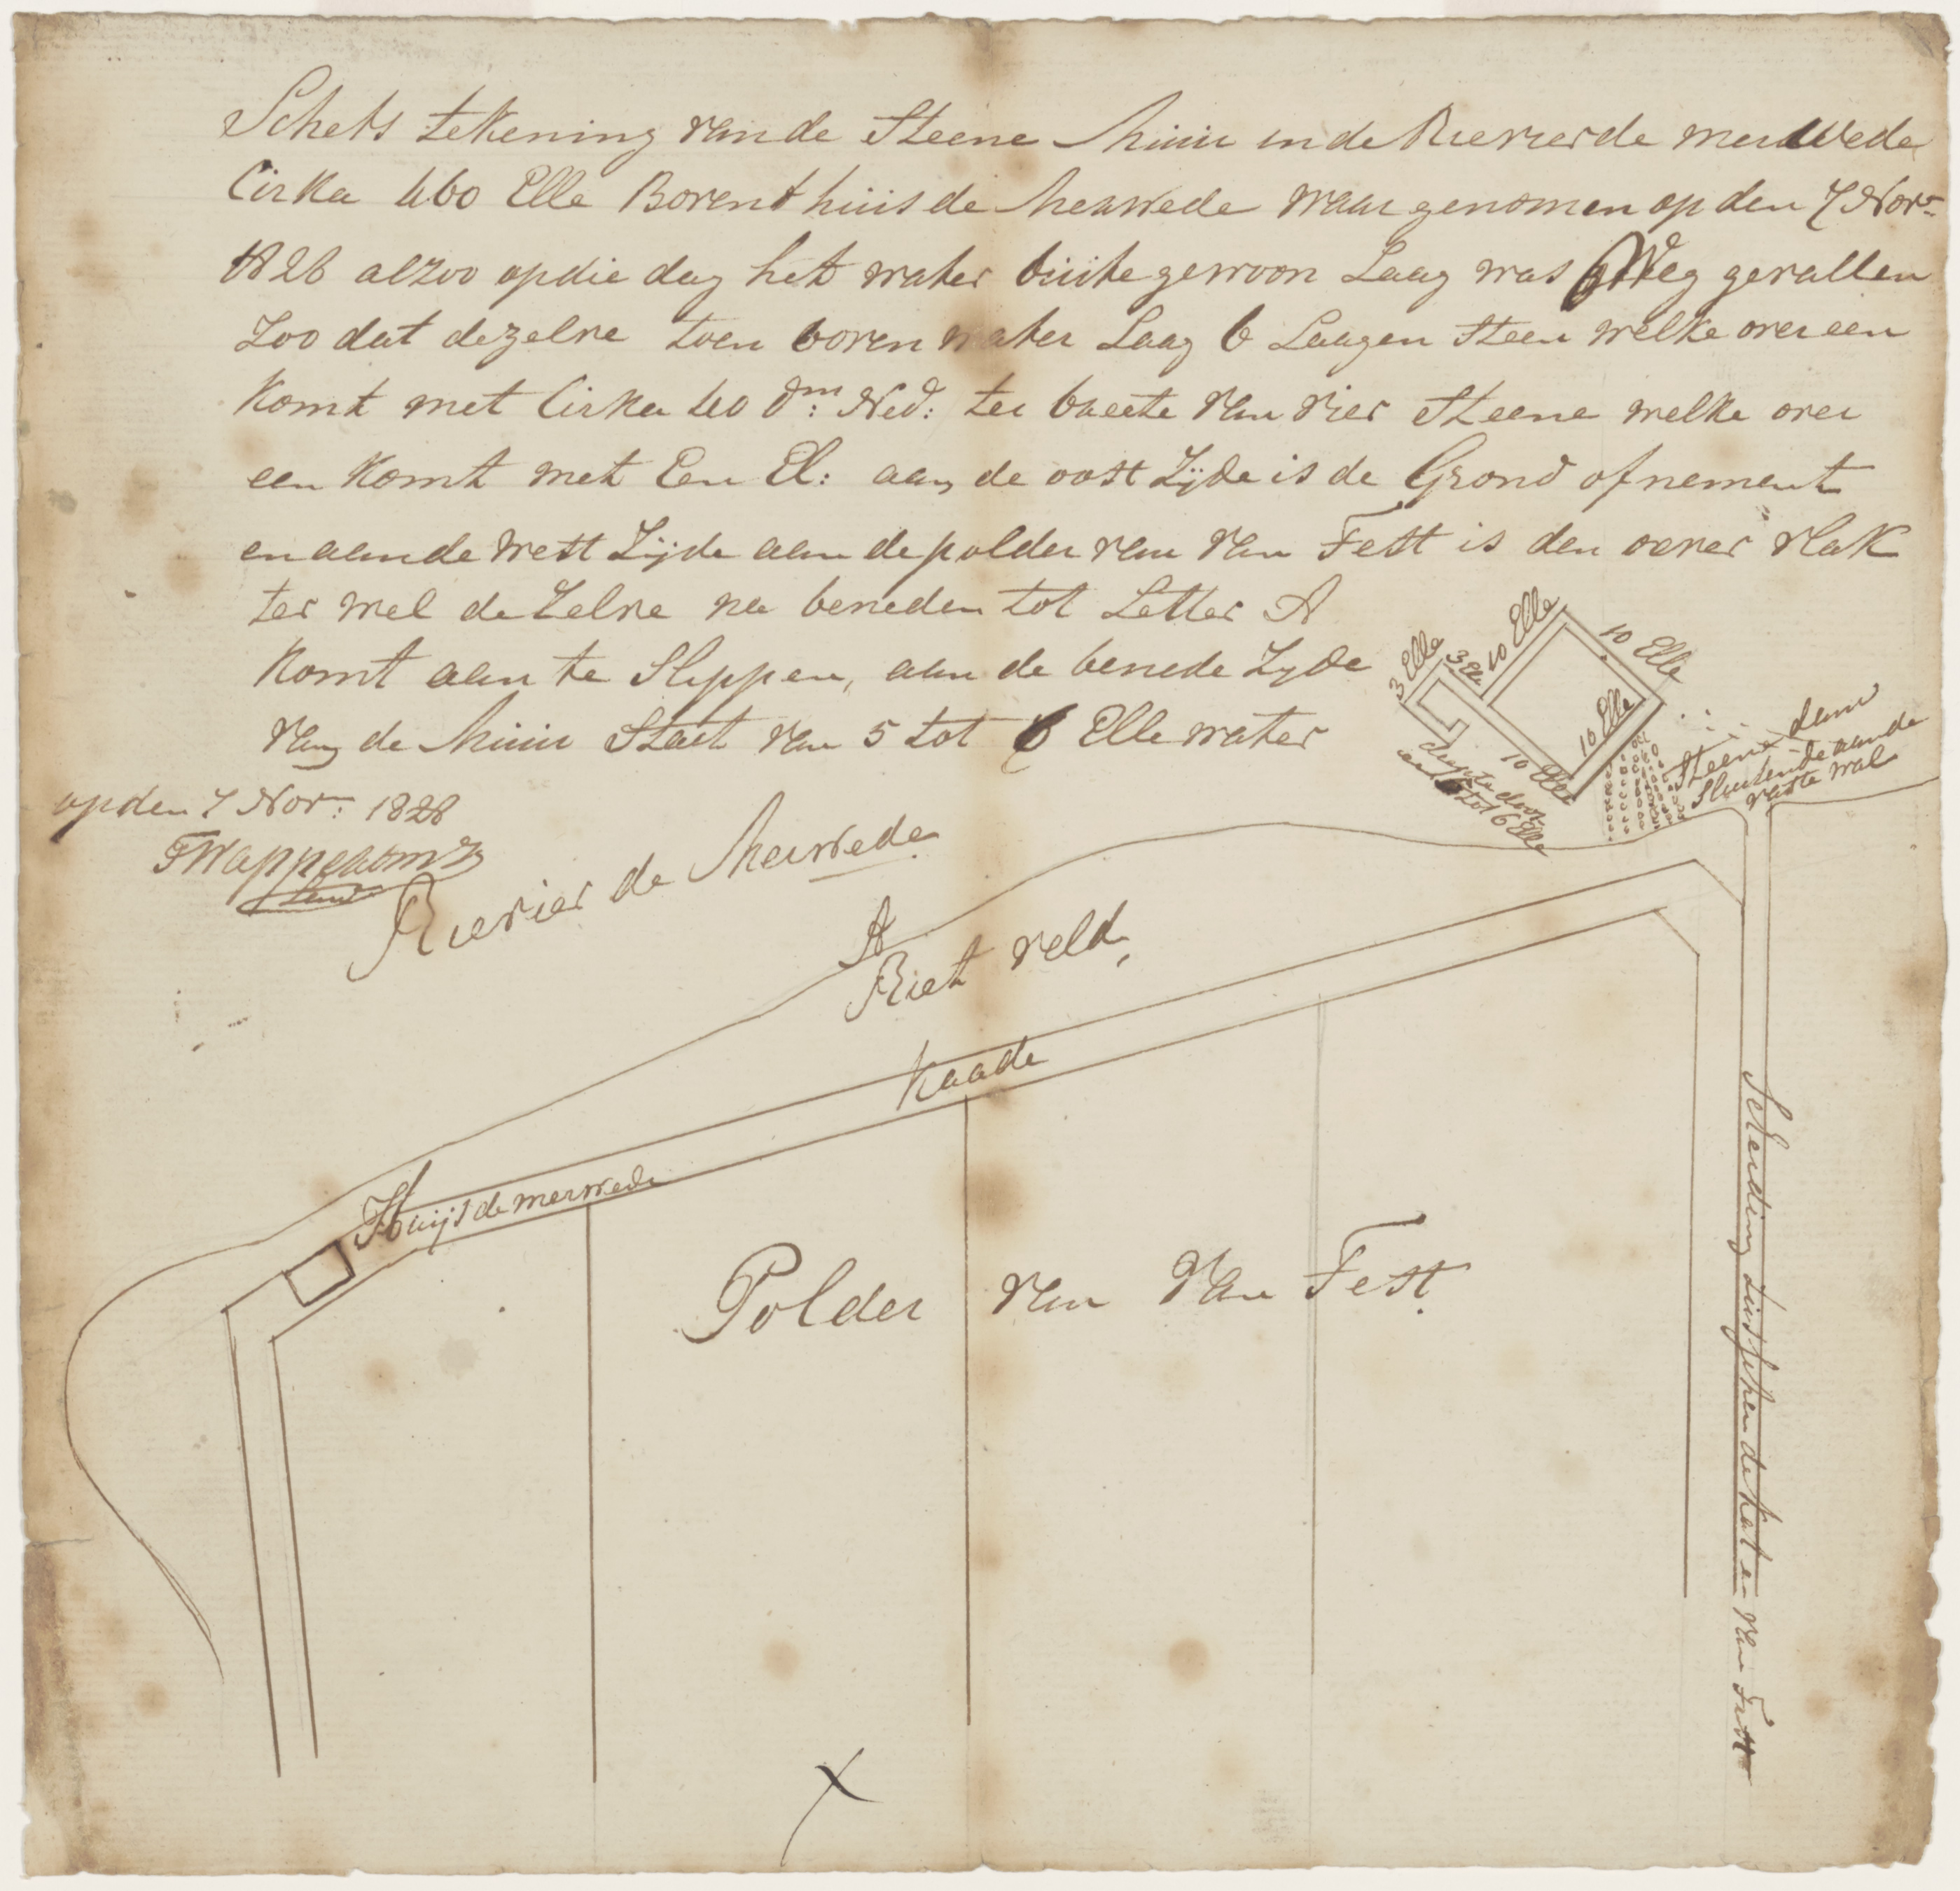 Schets tekening van de Steene Muur in de Rievier de merwede
Cirka 460 Elle Boven t huis de Merwede waar genomen op den 7 Nov:
1828 alzoo op die dag het water buite gewoon Laag was Weg gevallen
Zoo dat dezelve toen boven water Laag 6 Laagen Steen welke over een
komt met Cirka 40 dm: Ned: ter breete van vier Steene welke over
een komt met Een El: aan de oost Zijde is de Grond ofnement
en aan de west Zijde aan de polder van van Fest is den oever vlak
ter wel de Zelve na beneden tot Letter A
komt aan te Slippen, aan de benede Zyde
van de Muur Staet van 5 tot 6 Elle water
op den 7 Nov: 1828
3 Elle
3 Elle
10 Elle
10 Elle
10 Elle
10 Elle
diepte door
tot 6 Elle
Steene dam
Sluitende aan de
vaste wal
Rievier de Merwede
A
Riet veld,
Kaade
Huijs de merwede
Polder van Van Fest
Scheiding tusschen de kat en van Fest